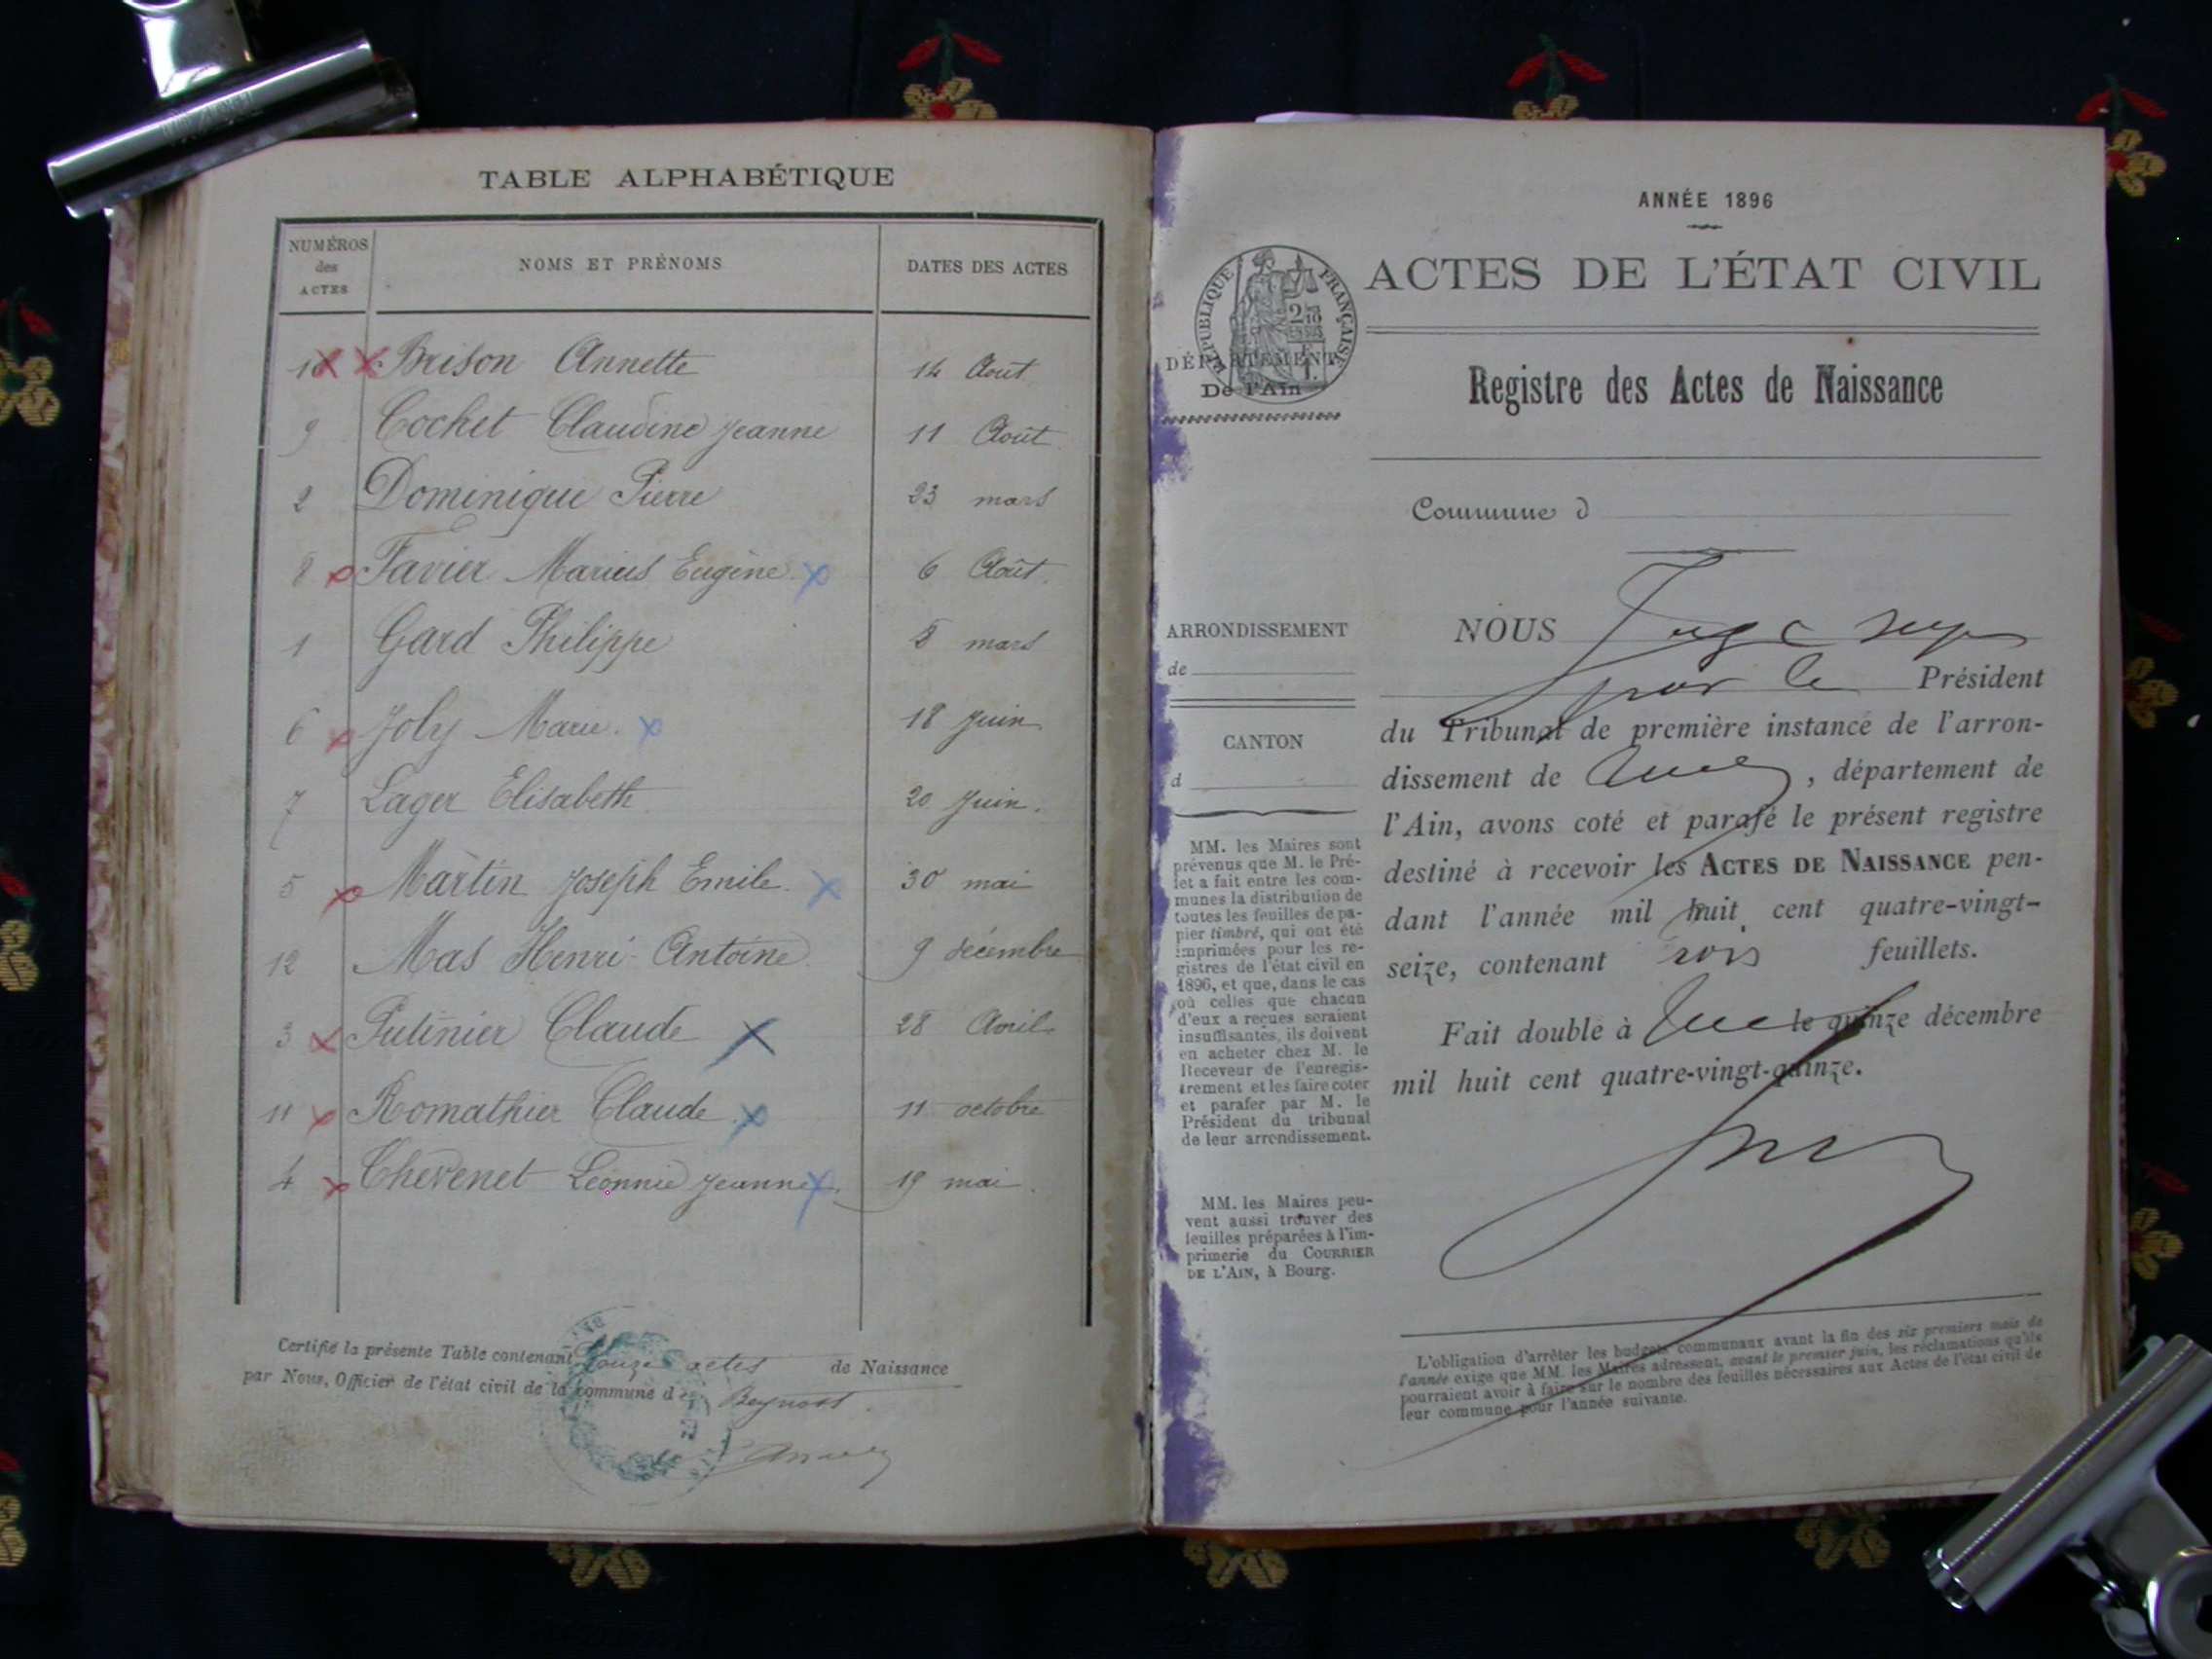 TABLE ALPHABÉTIQUE
NUMÉROS des ACTES NOMS ET PRÉNOMS DATES DES ACTES
10 Brison Annette 14 Août
9 Cochet Claudine Jeanne 11 Août
2 Dominique Pierre 23 mars
8 Favier Marius Eugène 6 Août
1 Gard Philippe 5 mars
6 Joly Marie 18 Juin
7 Lager Elisabeth 20 Juin
5 Martin Joseph Emile 30 mai
12 Mas Henri Antoine 9 décembre
3 Putinier Claude 28 Avril
11 Romathier Claude 11 octobre
4 Thevenet Léonnie Jeanne 19 mai
Certifié la présente Table contenant douze actes de Naissance
par Nous, Officier de l'état civil de la commune de Beynost
ANNÉE 1896
ACTES DE L'ÉTAT CIVIL
RÉPUBLIQUE FRANÇAISE
DÉPARTEMENT
De l'Ain
Registre des Actes de Naissance
Commune d
ARRONDISSEMENT
de
CANTON
d
MM. les Maires sont
prévenus que M. le Pré-
fet a fait entre les com-
munes la distribution de
toutes les feuilles de pa-
pier timbré, qui ont été
imprimées pour les re-
gistres de l'état civil en
1896, et que, dans le cas
où celles que chacun
d'eux a reçues seraient
insuffisantes, ils doivent
en acheter chez M. le
Receveur de l'enregis-
trement et les faire coter
et parafer par M. le
Président du tribunal
de leur arrondissement.
MM. les Maires peu-
vent aussi trouver des
feuilles préparées à l'im-
primerie du COURRIER
DE L'AIN, à Bourg.
NOUS Juge
pour le Président
du Tribunal de première instance de l'arron-
dissement de , département de
l'Ain, avons coté et parafé le présent registre
destiné à recevoir les ACTES DE NAISSANCE pen-
dant l'année mil huit cent quatre-vingt-
seize, contenant trois feuillets.
Fait double à le quinze décembre
mil huit cent quatre-vingt-quinze.
L'obligation d'arrêter les budgets communaux avant la fin des six premiers mois de
l'année exige que MM. les Maires adressent, avant le premier juin, les réclamations qu'ils
pourraient avoir à faire sur le nombre des feuilles nécessaires aux Actes de l'état civil de
leur commune pour l'année suivante.